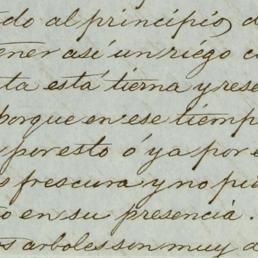 do al principio, d
ener así un riego c
ta está tierna y rese
porque en ese tiemp
y por esto ó ya por e
s frescura y no pu
o en su presencia.
os arboles son muy d